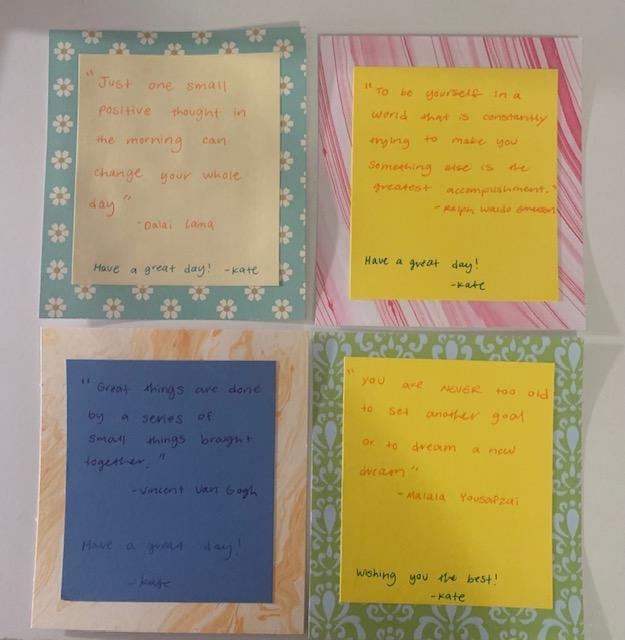 "Just one small
positive thought in
the morning can
change your whole
day"
-Dalai Lama
Have a great day! -Kate
"To be yourself in a
world that is constantly
trying to make you
something else is the
greatest accomplishment."
-Ralph Waldo Emerson
Have a great day!
-Kate
"Great things are done
by a series of
small things brought
together."
-Vincent Van Gogh
Have a great day!
-Kate
"You are NEVER too old
to set another goal
or to dream a new
dream"
-Malala Yousafzai
Wishing you the best!
-Kate